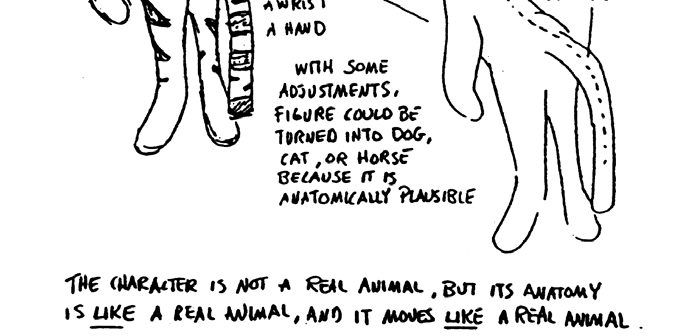 A WRIST
A HAND
WITH SOME
ADJUSTMENTS,
FIGURE COULD BE
TURNED INTO DOG,
CAT, OR HORSE
BECAUSE IT IS
ANATOMICALLY PLAUSIBLE
THE CHARACTER IS NOT A REAL ANIMAL, BUT ITS ANATOMY
IS LIKE A REAL ANIMAL, AND IT MOVES LIKE A REAL ANIMAL.